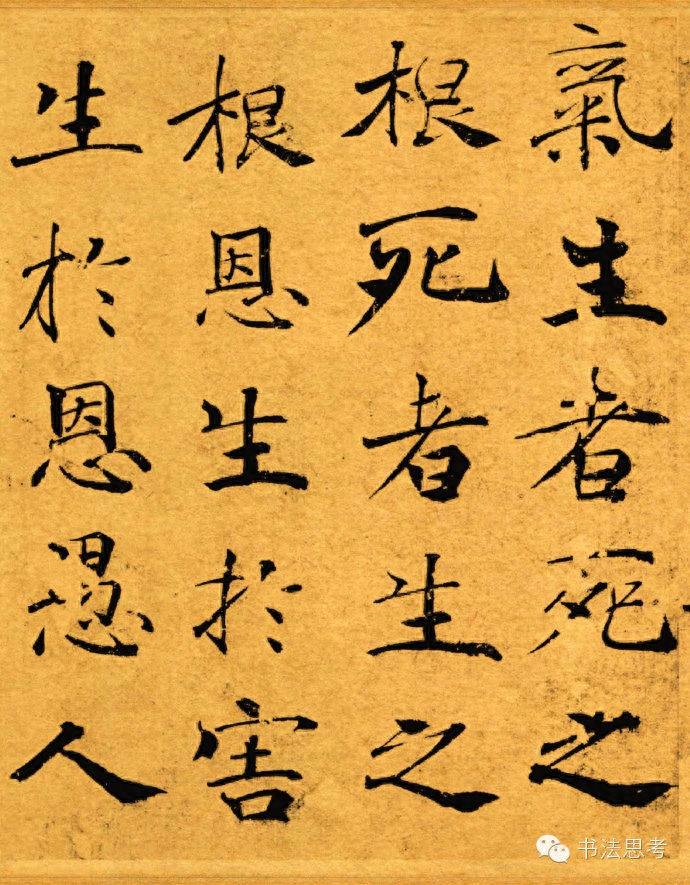 氣生者死之
根死者生之
根恩生於害
生於恩愚人
书法思考